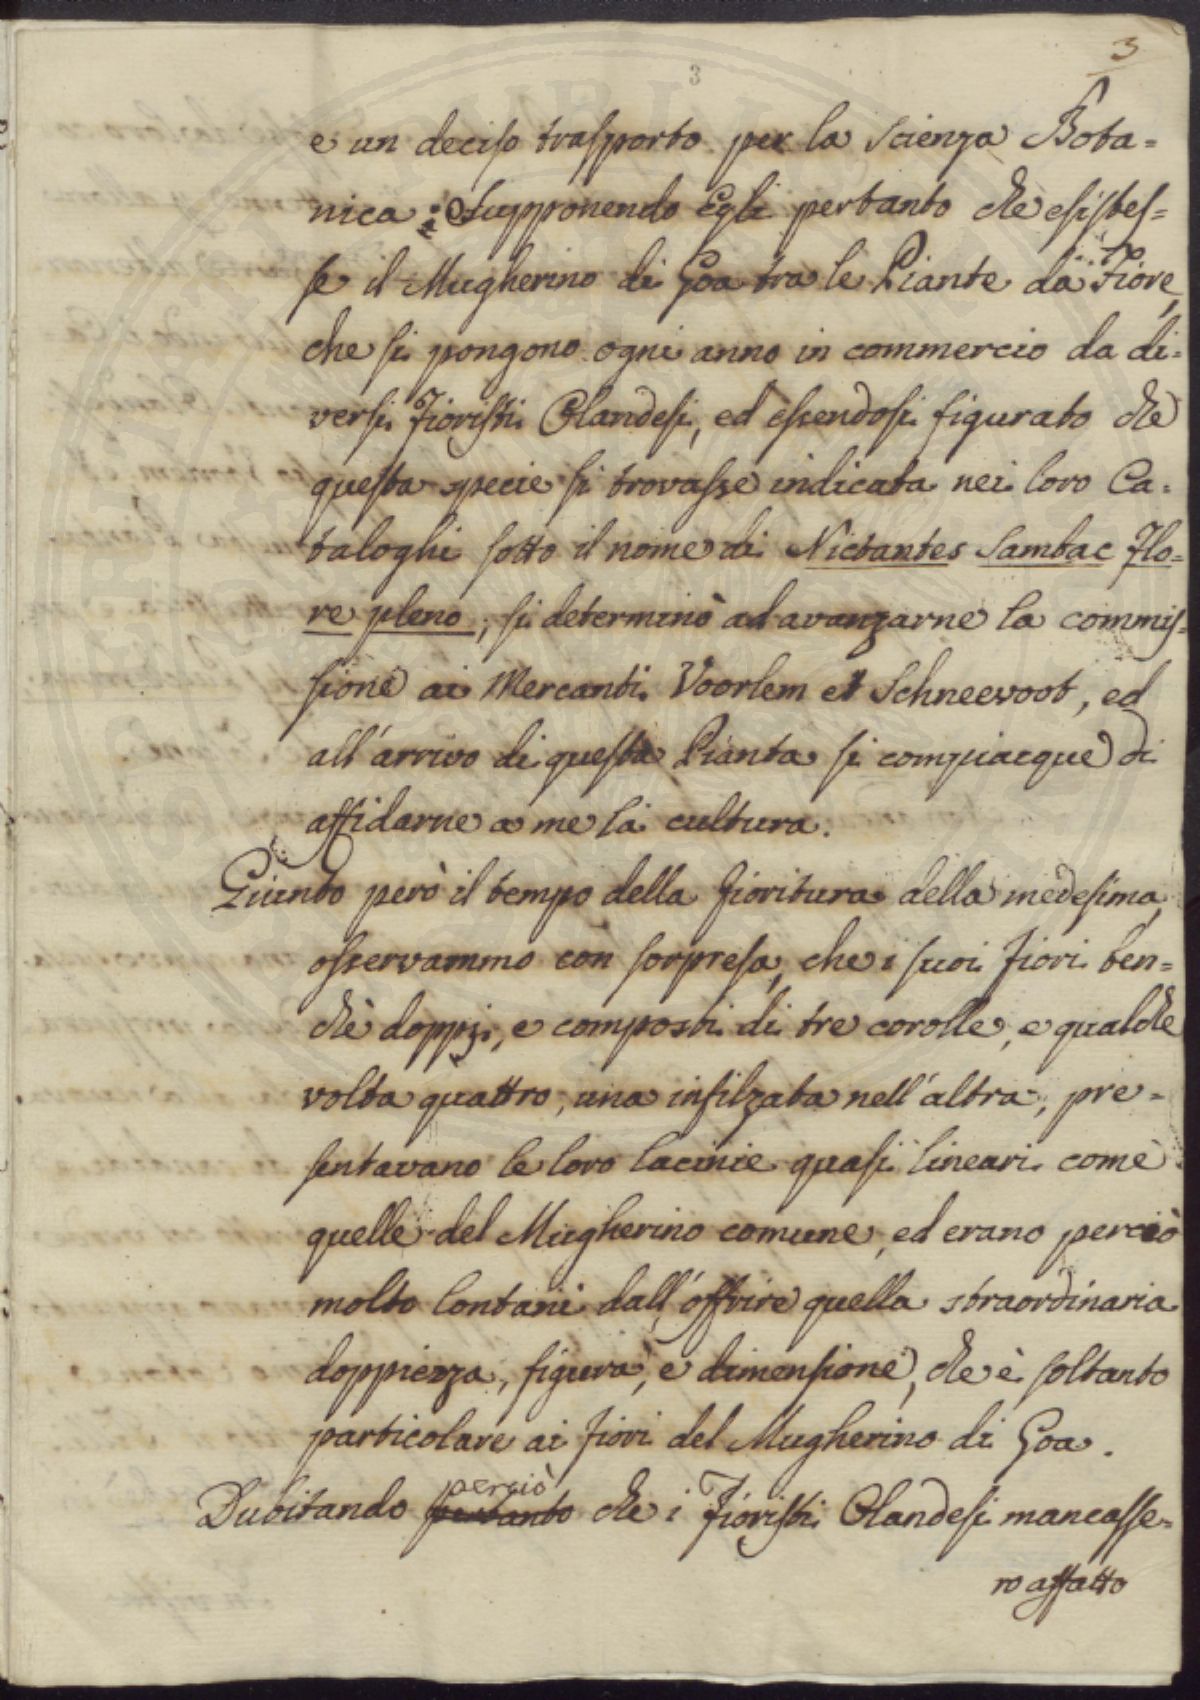 3
3
e un deciso trasporto per la scienza Bota=
nica: Supponendo Egli pertanto che esistes=
se il Mugherino di Goa tra le Piante da Fiore,
che si pongono ogni anno in commercio da di=
versi Fioristi Olandesi, ed essendosi figurato che
questa specie si trovasse indicata nei loro Ca=
taloghi sotto il nome di Nictantes Sambac Flo=
re pleno, si determinò ad avanzarne la commis=
sione ai Mercanti Voorlem et Schneevoot, ed
all'arrivo di questa Pianta si compiacque di
affidarne a me la cultura.
Giunto però il tempo della fioritura della medesima,
osservammo con sorpresa, che i suoi fiori ben=
chè doppj, e composti di tre corolle, e qualche
volta quattro, una infilzata nell'altra, pre=
sentavano le loro lacinie quasi lineari come
quelle del Mugherino comune, ed erano perciò
molto lontani dall'offrire quella straordinaria
doppiezza, figura, e dimensione, che è soltanto
particolare ai fiori del Mugherino di Goa.
perciò
Dubitando pertanto che i Fioristi Olandesi mancasse=
ro affatto